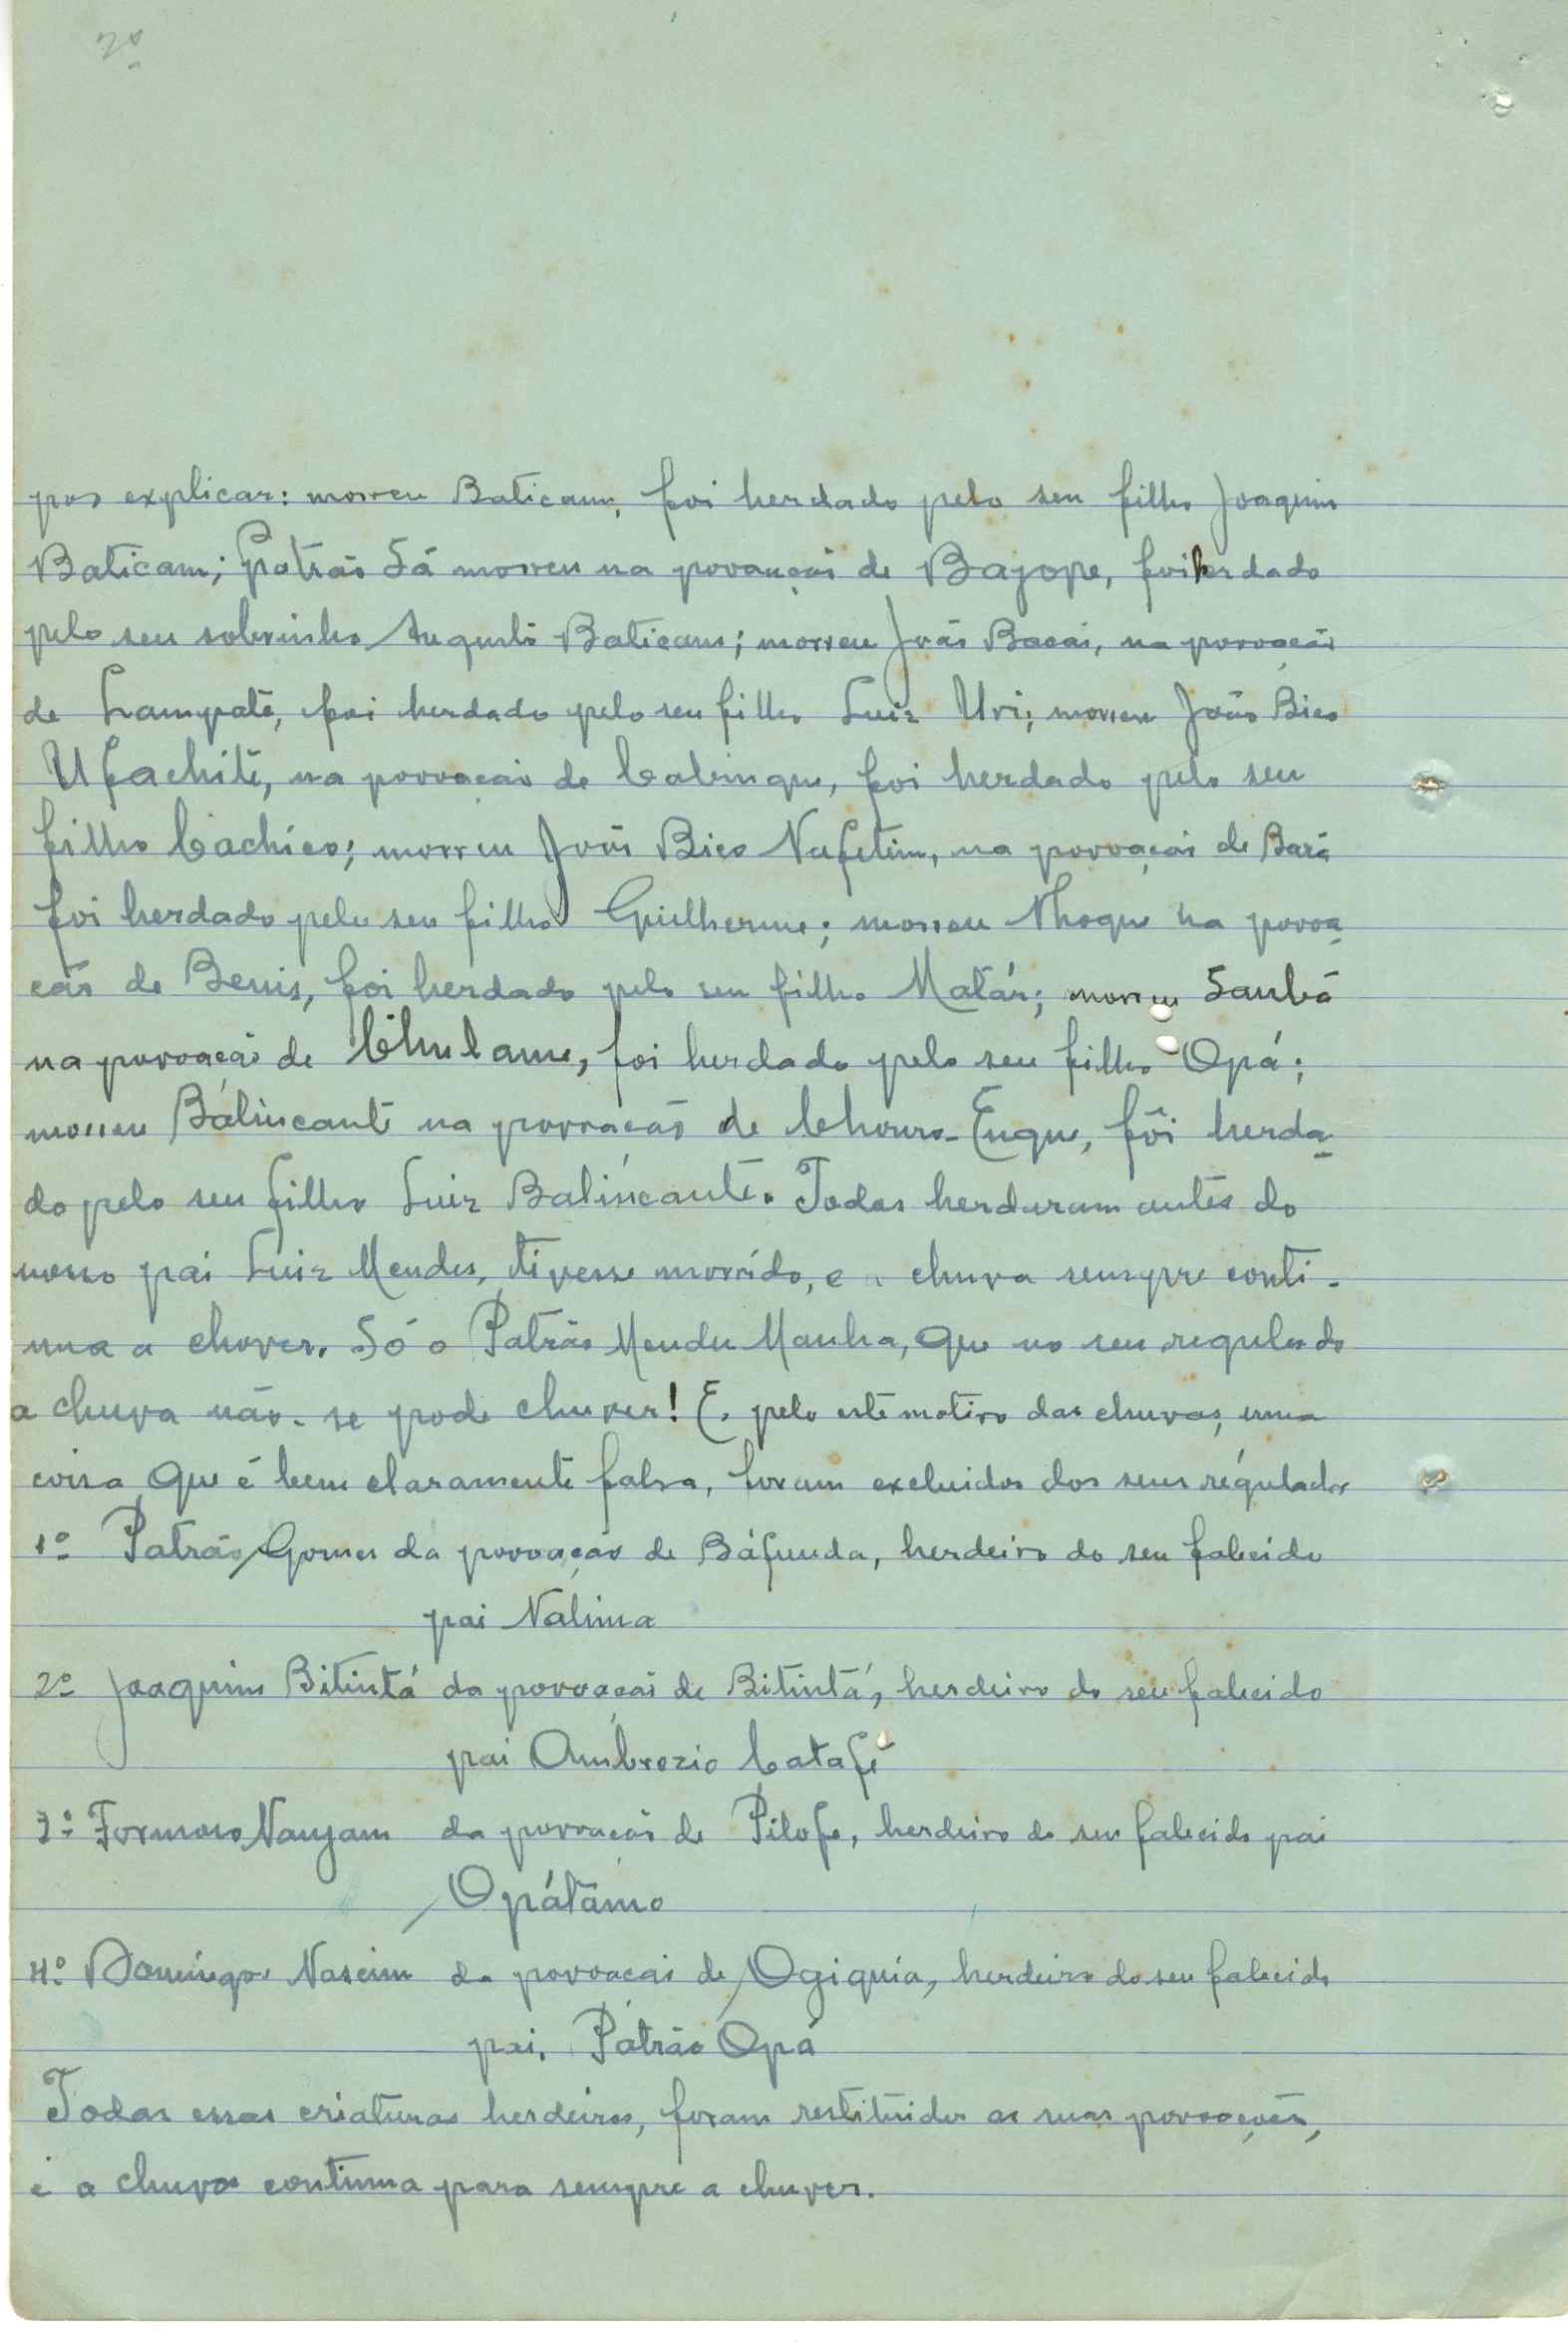 2º
pos explicar: morreu Baticam, foi herdado pelo seu filho Joaquim
Baticam; Patrão Sá morreu na povoação de Bajope, foi herdado
pelo seu sobrinho Augusto Baticam; morreu João Bacai, na povoação
de Lampatê, foi herdado pelo seu filho Luiz Uri; morreu João Bico
Ufachitê, na povoação de Cabinque, foi herdado pelo seu
filho Cachico; morreu João Bico Nafetim, na povoação de Bará
foi herdado pelo seu filho Guilherme; morreu Nhaque na povoa
ção de Benis, foi herdado pelo seu filho Matár; morreu Sanbá
na povoação de Chulame, foi herdado pelo seu filho Opá;
morreu Bálincante na povoação de Chouro-Enque, fôi herda-
do pelo seu filho Luiz Balincante. Todas herdaram antes do
nosso pai Luiz Mendes, tivesse morrido, e a chuva sempre conti-
nua a chover. Só o Patrão Mendes Manha, que no seu regulado
a chuva não-se pode chuver! E. pelo este motivo das chuvas, uma
coisa que é bem claramente falsa, foram excluidos dos seus régulados
1º Patrão Gomes da povoação de Báfunda, herdeiro do seu falecido
pai Nalima
2º Joaquim Bitintá da povoação de Bitintá, herdeiro do seu falecido
pai Ambrozio Catafê
3º Formoso Nanjam da povoação de Pilofe, herdeiro do seu falecido pai
Opátámo
4º Domingos Nascim da povoação de Ogiquia, herdeiro do seu falecido
pai, Pátrão Opá
Todas essas criaturas herdeiros, foram restituidos as suas povoações,
e a chuva continua para sempre a chuver.